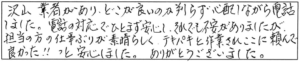 沢山業者があり、どこが良いのか判らず心配しながら電話
しました。電話の対応でひとまず安心し、それでも不安がありましたが、
担当の方の仕事ぶりが素晴らしくテキパキと作業されここに頼んで
良かった!!っと安心しました。ありがとうございました。